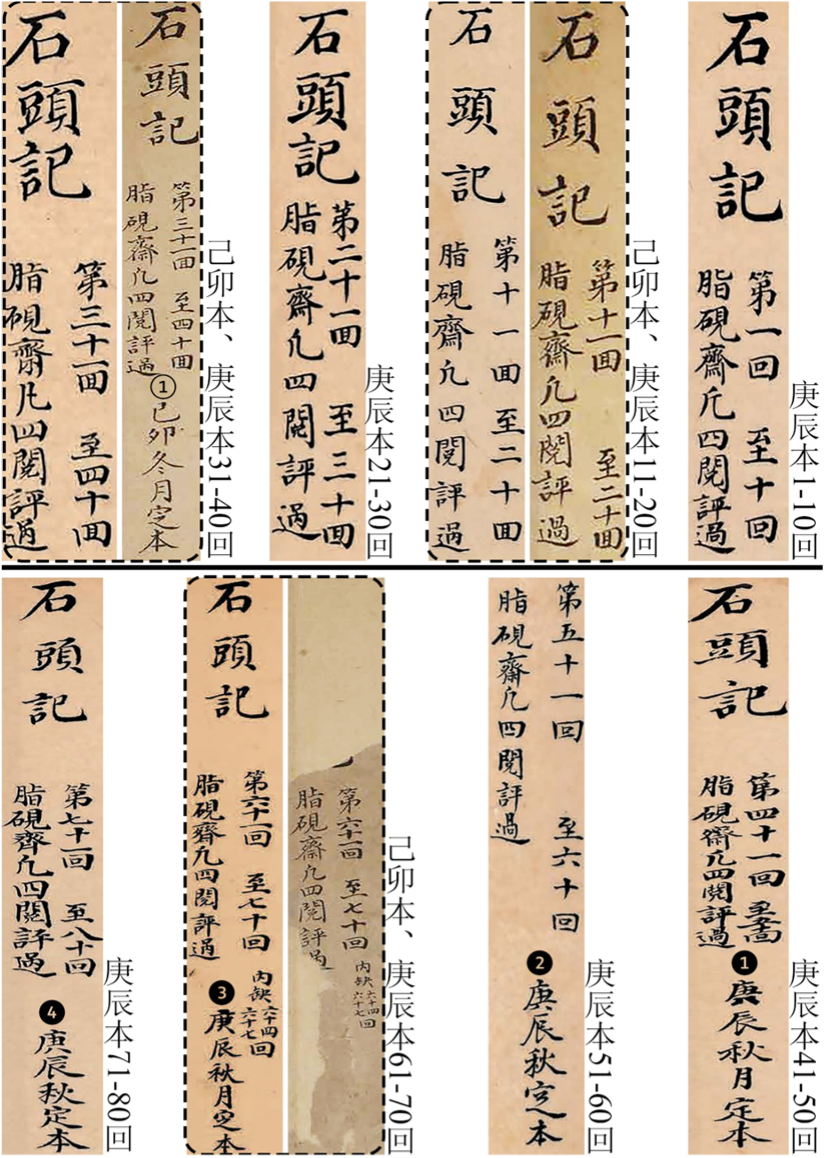 庚辰本1-10回
石頭記
第一回 至十回
脂硯齋凢四閱評過
己卯本、庚辰本11-20回
石頭記
第十一囬 至二十囬
脂硯齋凢四閱評過
石頭記
第十一囬至二十囬
脂硯齋凢四閱評過
庚辰本21-30回
石頭記
第二十一囬 至三十囬
脂硯齋凢四閱評過
己卯本、庚辰本31-40回
石頭記
第三十一囬 至四十囬
脂硯齋凢四閱評過
①己卯冬月定本
石頭記
第三十一囬 至四十囬
脂硯齋凢四閱評過
庚辰本41-50回
石頭記
第四十一回 至五十回
脂硯齋凢四閱評過
❶庚辰秋月定本
庚辰本51-60回
第五十一回 至六十回
脂硯齋凢四閱評過
❷庚辰秋定本
己卯本、庚辰本61-70回
第六十一回 至七十回
内缺六十四六十七回
脂硯齋凢四閱評過
石頭記
第六十一回 至七十回
内缺六十四六十七回
脂硯齋凢四閱評過
❸庚辰秋月定本
庚辰本71-80回
石頭記
第七十一回 至八十回
脂硯齋凢四閱評過
❹庚辰秋定本